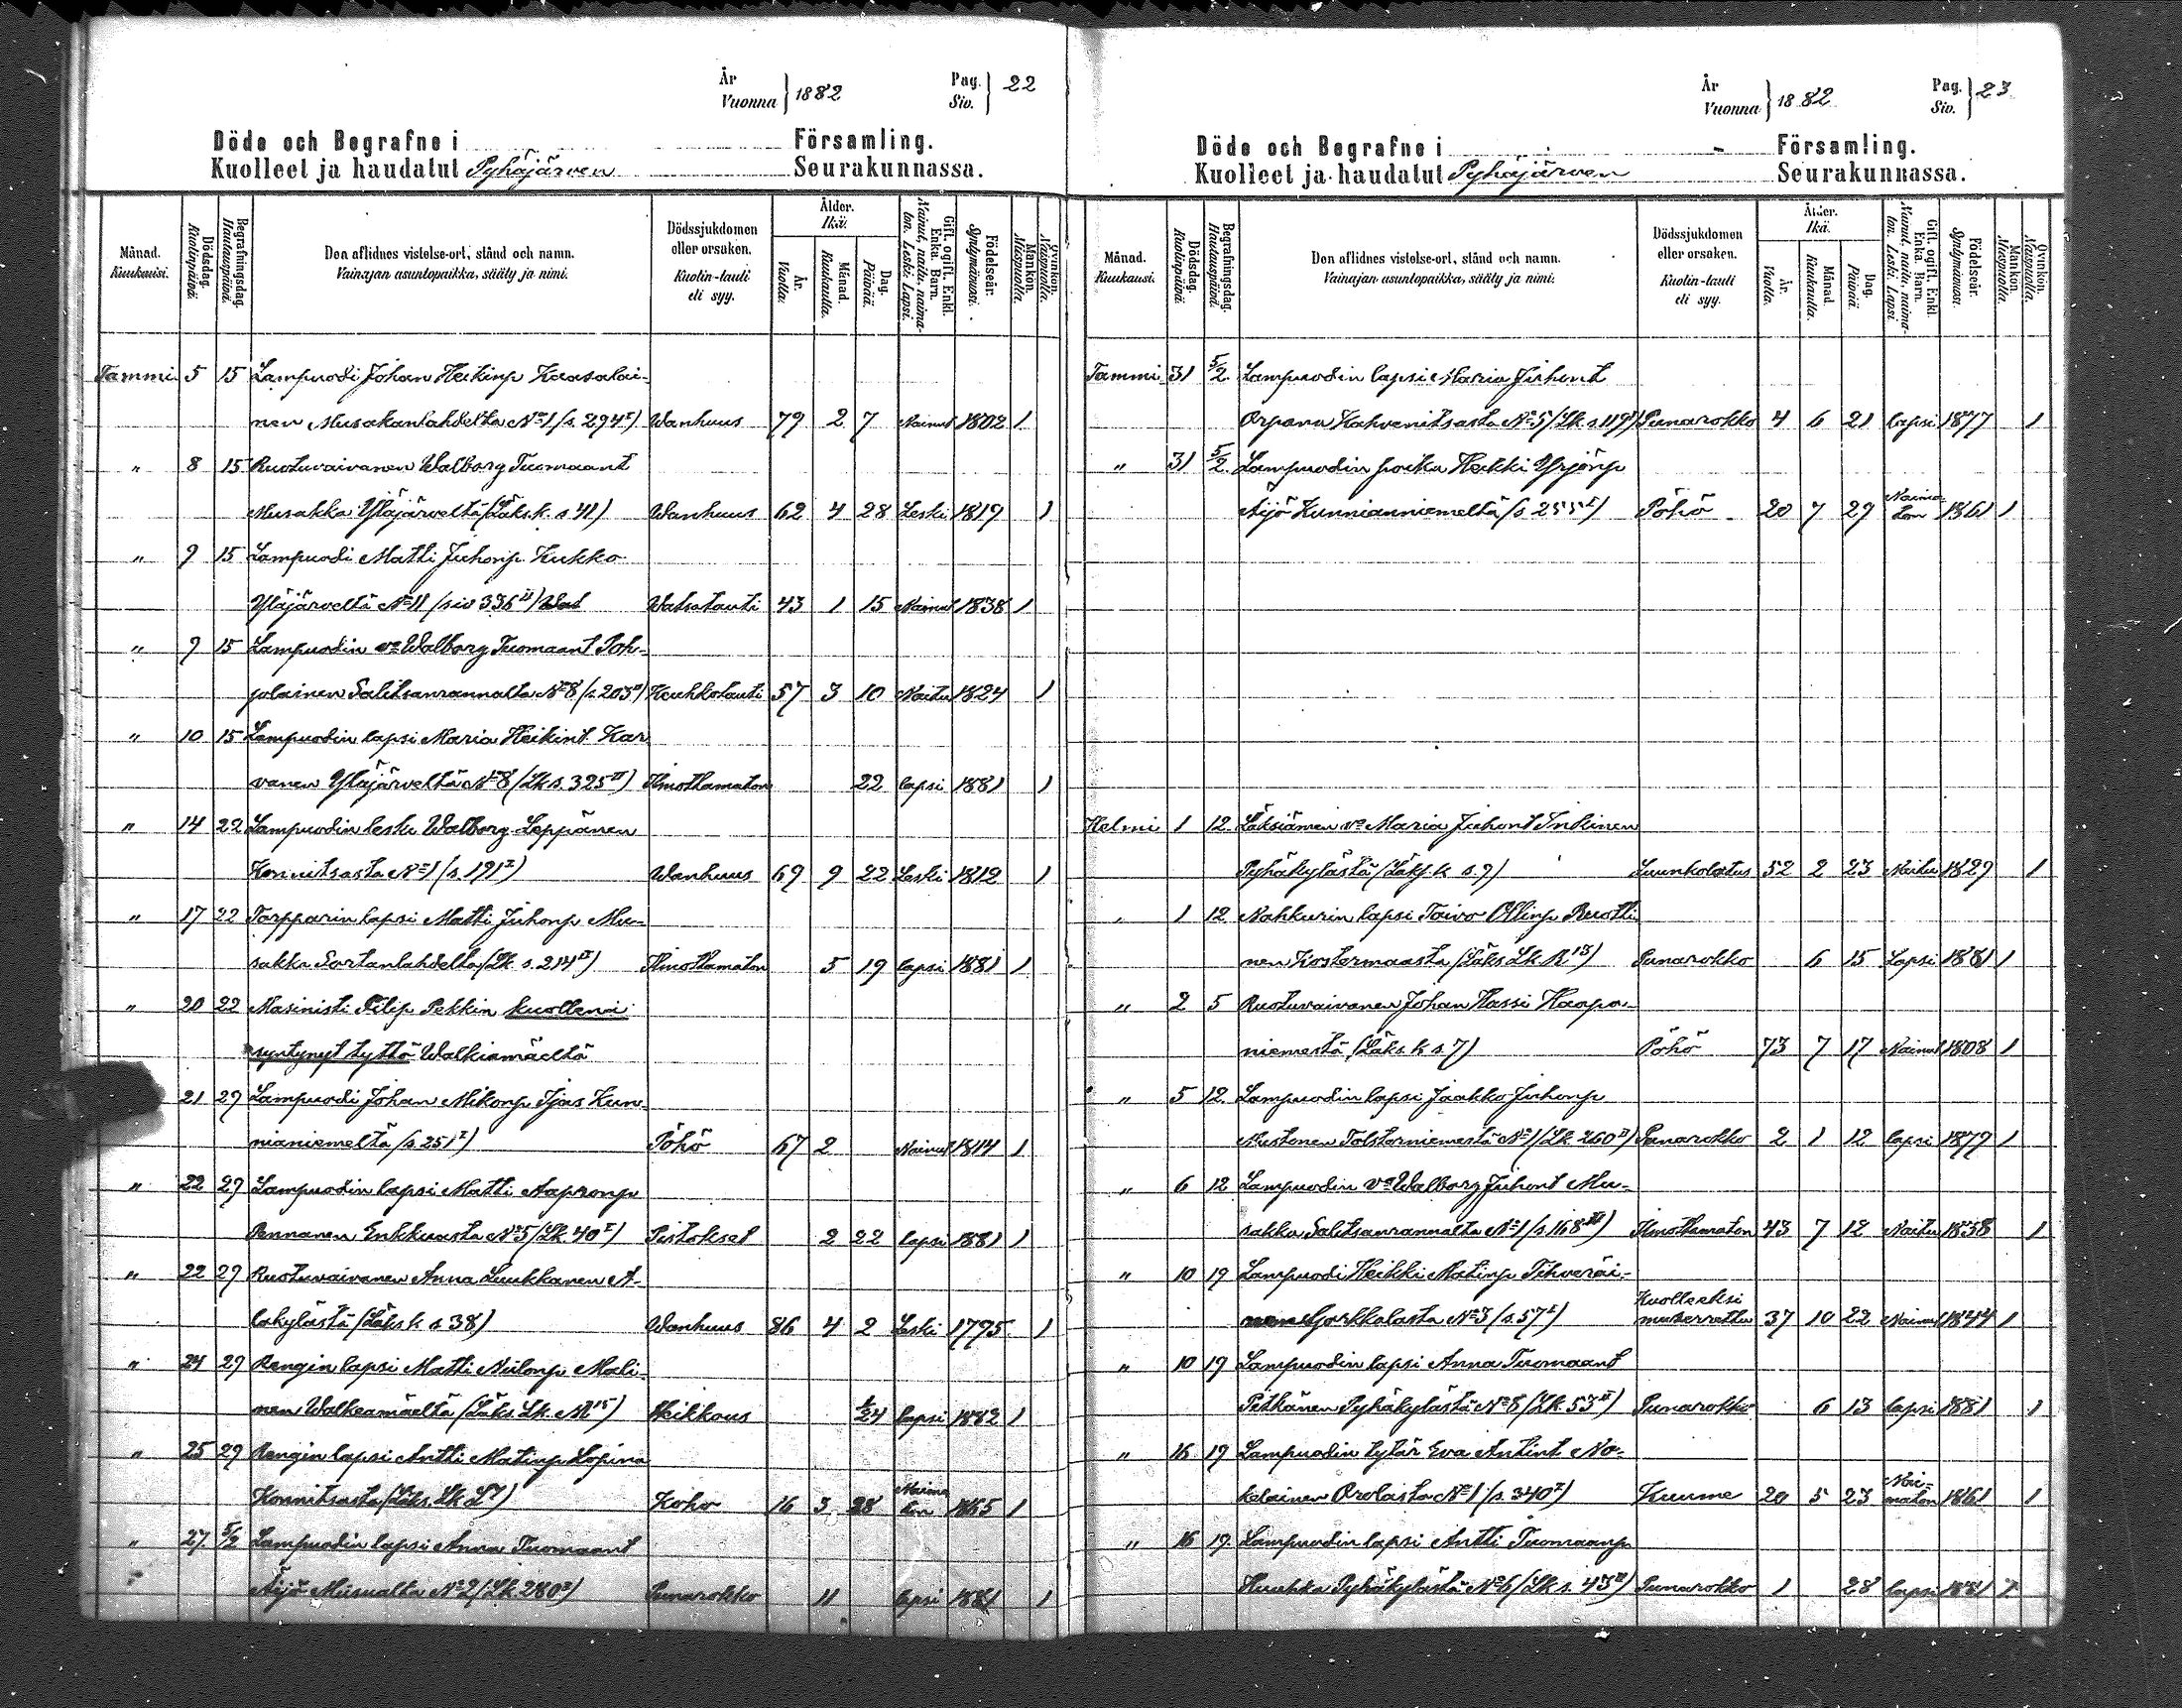 År
Vuonna } 1882
Pag.
Siv. } 22
Döde och Begrafne i Församling.
Kuolleet ja haudatut Pyhäjärven Seurakunnassa.
Månad. Kuukausi.
Dödsdag. Kuolinpäivä.
Begrafningsdag. Hautauspäivä.
Den aflidnes vistelse-ort, stånd och namn.
Vainajan asuntopaikka, sääty ja nimi.
Dödssjukdomen eller orsaken.
Kuolin-tauti eli syy.
Ålder. Ikä.
År. Vuotta.
Månad. Kuukautta.
Dag. Päivää.
Gift, ogift, Enkl. Enka. Barn.
Nainut, naitu, naimaton. Leski. Lapsi.
Födelseår. Syntymävuosi.
Mankön. Miespuolia.
Qvinkön. Naispuolia.
Tammi 5 15 Lampuodi Johan Heikinp Kaasalai-
nen Musakanlahdelta No 1 (s. 294 I) Wanhuus 79 2 7 Nainut 1802 1
" 8 15 Ruotuvaivanen Walborg Tuomaant
Musakka Yläjärveltä (Läks.k. s 41) Wanhuus 62 4 28 Leski 1819 1
" 9 15 Lampuodi Matti Juhonp. Kukko
Yläjärveltä No 11 (siv 336 II) Wat Watsatauti 43 1 15 Nainut 1838 1
" 9 15 Lampuodin vo Walborg Tuomaant Poh-
jolainen Salitsanrannalta No 8 (s. 203 II) Keuhkotauti 57 3 10 Naitu 1824 1
" 10 15 Lampuodin lapsi Maria Heikint. Kar
vanen Yläjärveltä No 8 (Lk s. 325 II) Ilmottamaton 22 lapsi 1881 1
" 14 22 Lampuodin leski Walborg Leppänen
Konnitsasta No 1 (s. 191 I) Wanhuus 69 9 22 Leski 1812 1
" 17 22 Torpparin lapsi Matti Juhonp Mu-
sakka Sortanlahdelta (Lk. s. 214 II) Ilmottamaton 5 19 lapsi 1881 1
" 20 22 Masinisti Filip Pekkin kuollena
syntynyt tyttö Walkiamäeltä
21 29 Lampuodi Johan Mikonp Ijas Kun-
nianiemeltä (s. 251 I) Pöhö 67 2 Nainut 1814 1
" 22 29 Lampuodin lapsi Matti Aapronp
Pennanen Enkkuasta No 5 (Lk. 40 I) Pistokset 2 22 lapsi 1881 1
" 22 29 Ruotuvaivanen Anna Luukkanen A-
lakylästä (Läks k. s 38) Wanhuus 86 4 2 Leski 1795 1
" 24 29 Rengin lapsi Matti Niilonp Mali-
nen Walkeamäeltä (Läks. Lk. M 15) Heikkous 1/24 lapsi 1882 1
" 25 29 Rengin lapsi Antti Matinp Lopina
Konnitsasta (Läks. Lk L 7) Koho 16 3 28 Naimaton 1865 1
" 27. 5/2 Lampuodin lapsi Anna Tuomaant
Äijö Miisualta No 2 (Lk. 280 I) Punarokko 11 lapsi 1881 1
År
Vuonna } 1882
Pag.
Siv. } 23
Döde och Begrafne i Församling.
Kuolleet ja haudatut Pyhäjärven Seurakunnassa.
Månad. Kuukausi.
Dödsdag. Kuolinpäivä.
Begrafningsdag. Hautauspäivä.
Den aflidnes vistelse-ort, stånd och namn.
Vainajan asuntopaikka, sääty ja nimi.
Dödssjukdomen eller orsaken.
Kuolin-tauti eli syy.
Ålder. Ikä.
År. Vuotta.
Månad. Kuukautta.
Dag. Päivää.
Gift, ogift, Enkl. Enka. Barn.
Nainut, naitu, naimaton. Leski. Lapsi.
Födelseår. Syntymävuosi.
Mankön. Miespuolia.
Qvinkön. Naispuolia.
Tammi 31 5/2. Lampuodin lapsi Maria Juhont
Orpana Kahvenitsasta No 5 (Lk. s. 119) Punarokko 4 6 21 lapsi 1877 1
" 31 5/2. Lampuodin poika Heikki Yrjönp
Äijö Kunnianniemeltä (s 255 I) Pöhö 20 7 29 Naimaton 1861 1
Helmi 1 12. Läksiämen vo Maria Juhont Inkinen
Pyhäkylästä (Läks. k s. 9) Luunkolotus 52 2 23 Naitu 1829 1
" 1 12 Nahkurin lapsi Toivo Ollinp Ruotti-
nen Kostermaasta (Läks Lk. R. 13) Punarokko 6 15 Lapsi 1881 1
" 2 5 Ruotuvaivanen Johan Hassi Haapa-
niemestä (Läks. k s. 7) Pöhö 73 7 17 Nainut 1808 1
" 5 12. Lampuodin lapsi Jaakko Juhonp
Mustonen Tolstoniemestä No 1 (Lk. 260 II) Punarokko 2 1 12 lapsi 1879 1
" 6 12 Lampuodin vo Walborg Juhont Mu-
sakka Salitsanrannalta No 1 (s. 168 II) Ilmottamaton 43 7 12 Naitu 1838 1
" 10 19 Lampuodi Heikki Matinp Tihveräi-
nen Gorkkalasta No 3 (s. 57 I) Kuolleeksi muserrettu 37 10 22 Nainut 1844 1
" 10 19 Lampuodin lapsi Anna Tuomaant
Pitkänen Pyhäkylästä No 8 (Lk. 53 II) Punarokko 6 13 lapsi 1881 1
" 16 19 Lampuodin tytär Eva Antint No-
kelainen Orolasta No 1 (s. 340 I) Kuume 20 5 23 Nai-maton 1861 1
" 16 19. Lampuodin lapsi Antti Tuomaanp
Huuhka Pyhäkylästä No 6 (Lk s. 43 II) Punarokko 1 28 lapsi 1881 1